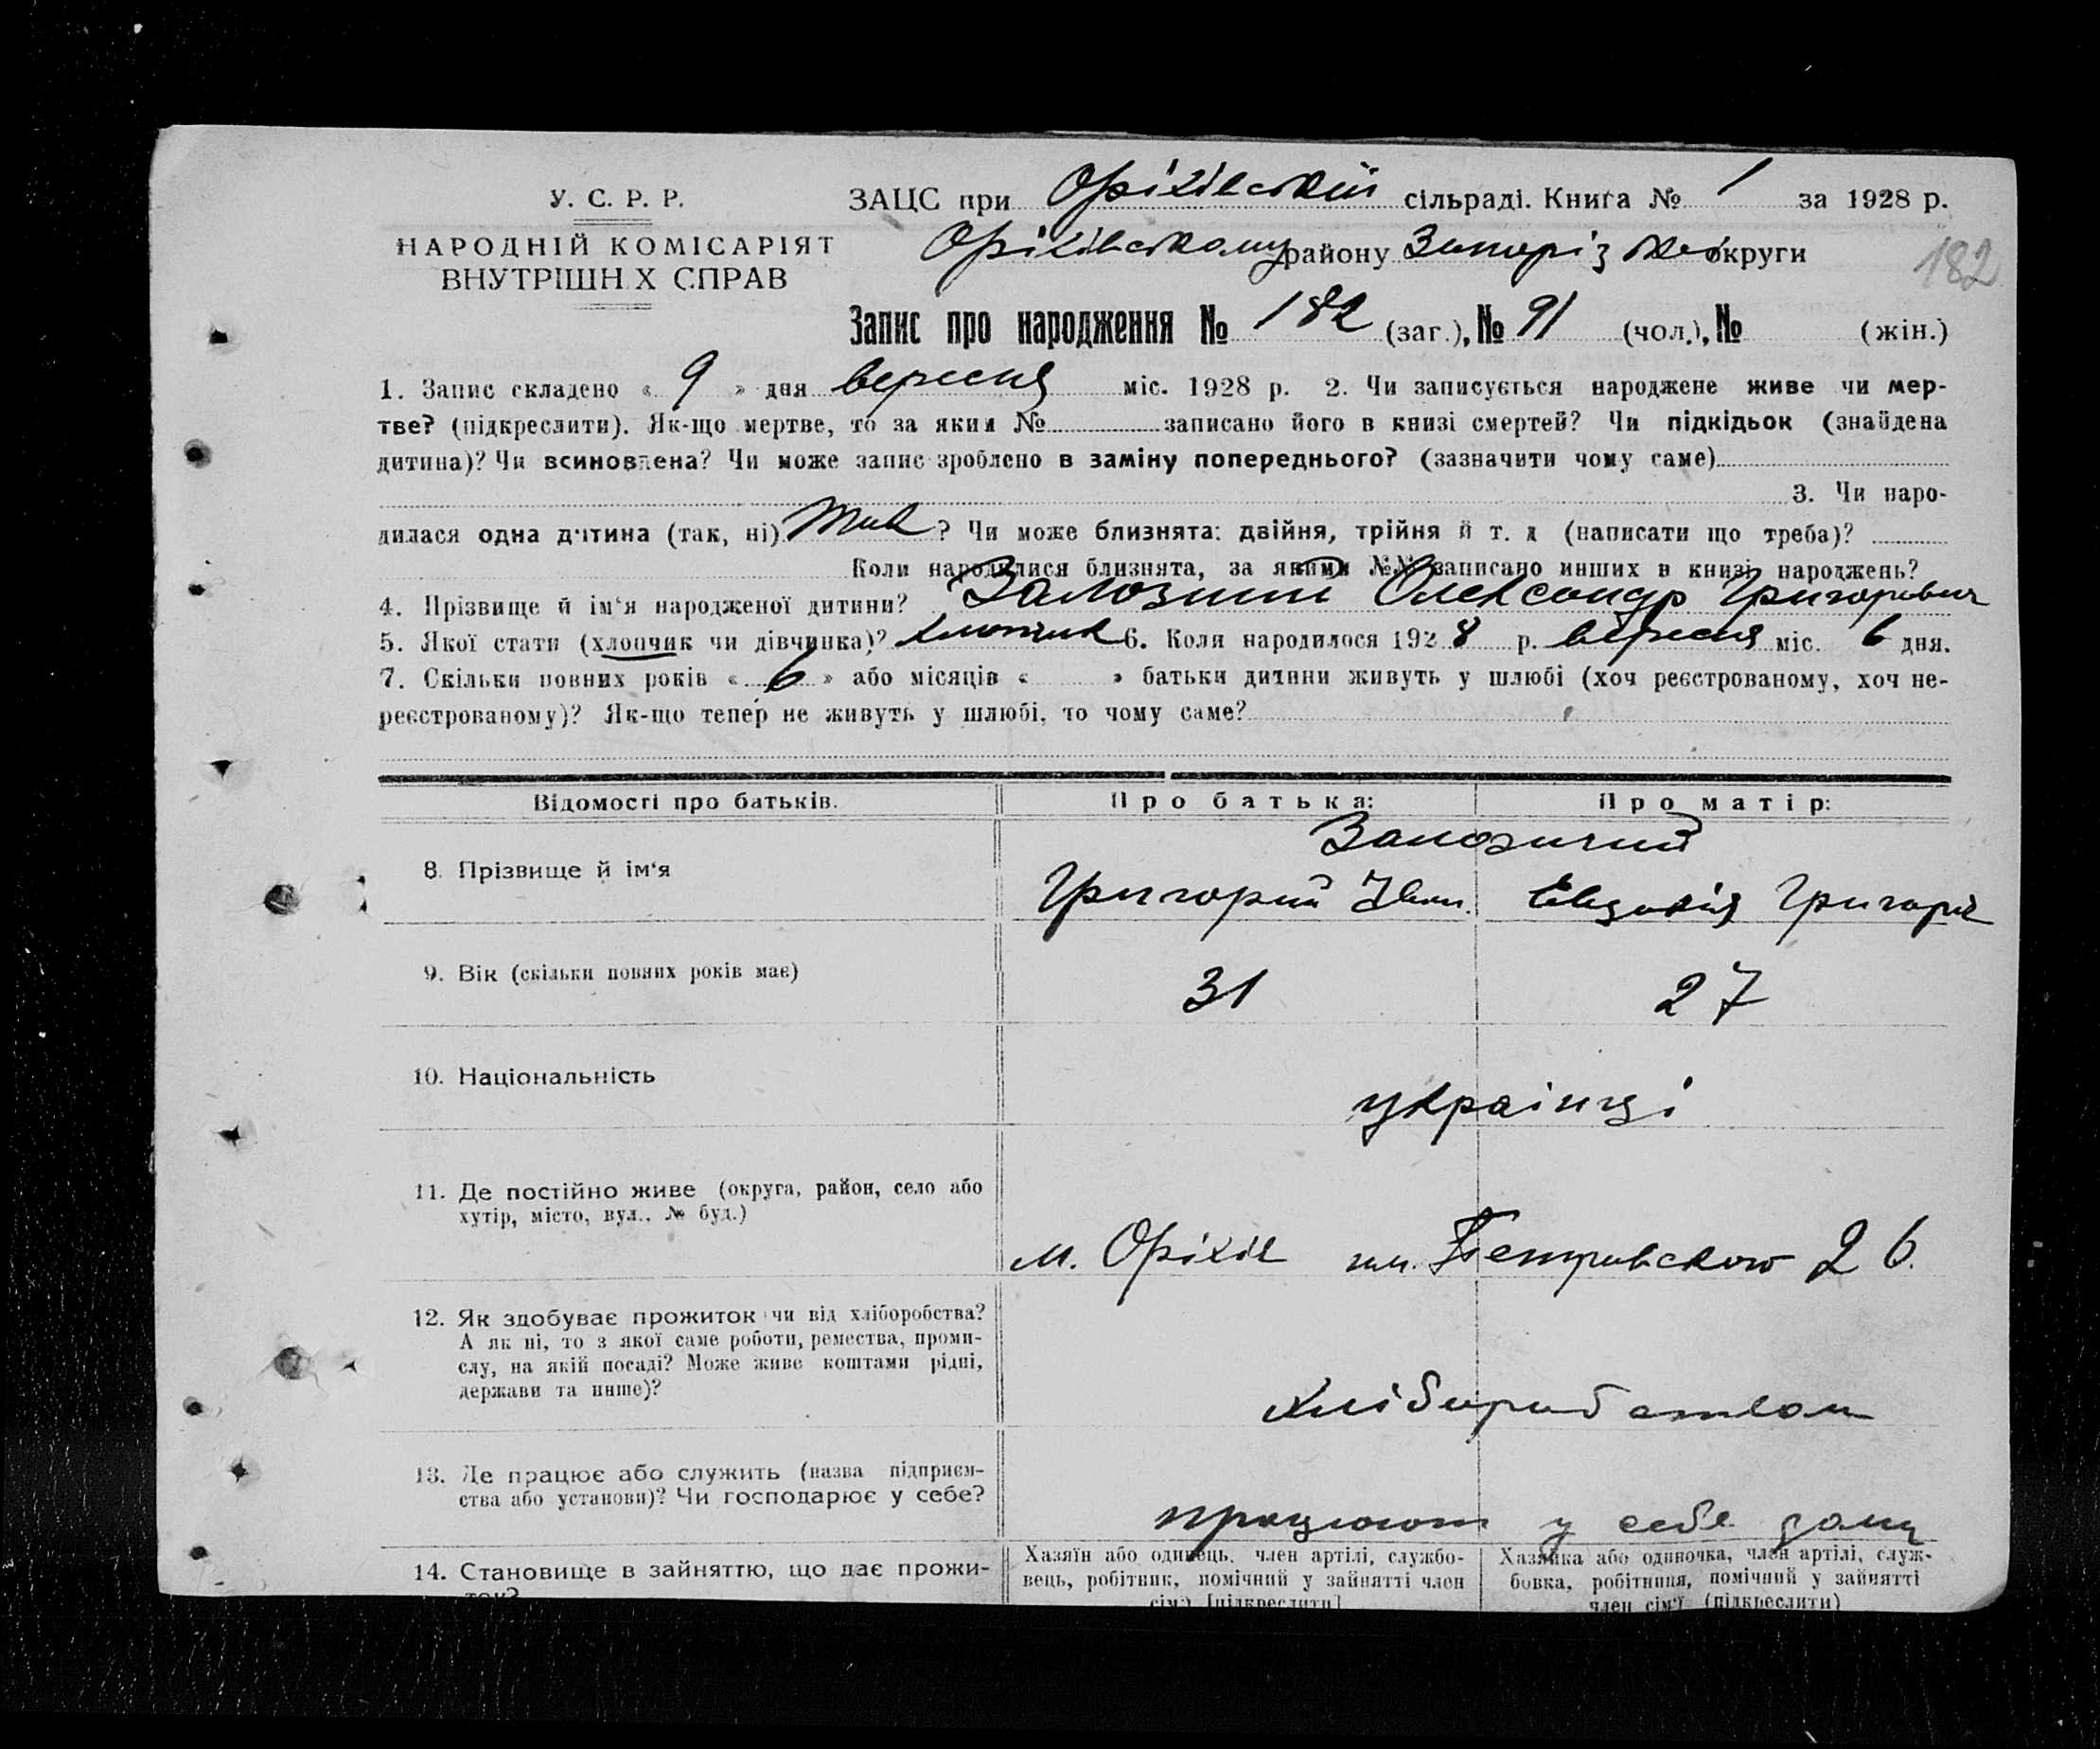 У. С. Р. Р.
НАРОДНІЙ КОМІСАРІЯТ
ВНУТРІШН Х СПРАВ
ЗАЦС при Оріхівській сільраді. Книга № 1 за 1928 р.
Оріхівському району Запоріз округи
182
Запис про народження № 182 (заг.), № 91 (чол.), № (жін.)
1. Запис складено « 9 » дня вересня міс. 1928 р. 2. Чи записується народжене живе чи мер-
тве? (підкреслити). Як-що мертве, то за яким № записано його в книзі смертей? Чи підкідьок (знайдена
дитина)? Чи всиновлена? Чи може запис зроблено в заміну попереднього? (зазначити чому саме)
3. Чи наро-
дилася одна дитина (так, ні) Так ? Чи може близнята: двійня, трійня й т. д (написати що треба)?
Коли народилися близнята, за якими №№ записано инших в книзі народжень?
4. Прізвище й ім‘я народженої дитини? Залозний Олександр Григорович
5. Якої стати (хлопчик чи дівчинка)? хлопчик 6. Коли народилося 1928 р. вересня міс. 6 дня.
7. Скільки повних років « 6 » або місяців « » батьки дитини живуть у шлюбі (хоч реєстрованому, хоч не-
реєстрованому)? Як-що тепер не живуть у шлюбі, то чому саме?
Відомості про батьків. Про батька: Про матір:
8. Прізвище й ім‘я
Григорий Іван. Евдокія Григорів
9. Вік (скільки повних років має) 31 27
10. Національність українці
11. Де постійно живе (округа, район, село або
хутір, місто, вул., № буд.)
м. Оріхів Петровского 26.
12. Як здобуває прожиток чи від хліборобства?
А як ні, то з якої саме роботи, ремества, проми-
слу, на якій посаді? Може живе коштами рідні,
держави та инше)?
хліборобством
13. Де працює або служить (назва підприєм-
ства або установи)? Чи господарює у себе?
працюют у себе дому
14. Становище в зайняттю, що дає прожи-
ток?
Хазяїн або одинець, член артілі, службо-
вець, робітник, помічний у зайнятті член
сім‘ї [підкреслити]
Хазяйка або одиночка, член артілі, служ-
бовка, робітниця, помічний у зайнятті
член сім‘ї (підкреслити)